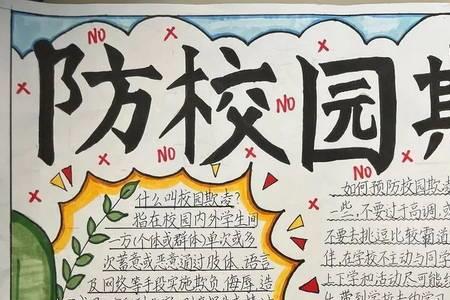 NO
防校园
NO
NO
什么叫校园欺凌?
指在校园内外学生间
一方(个体或群体)单次或多
次蓄意或恶意通过肢体、语言
及网络等手段实施欺负、侮辱、造
如何预防校园欺凌
一些,不要过于高调,
不要去挑逗比较霸道
伴,在学校不主动与同学
上下学和活动尽可能结